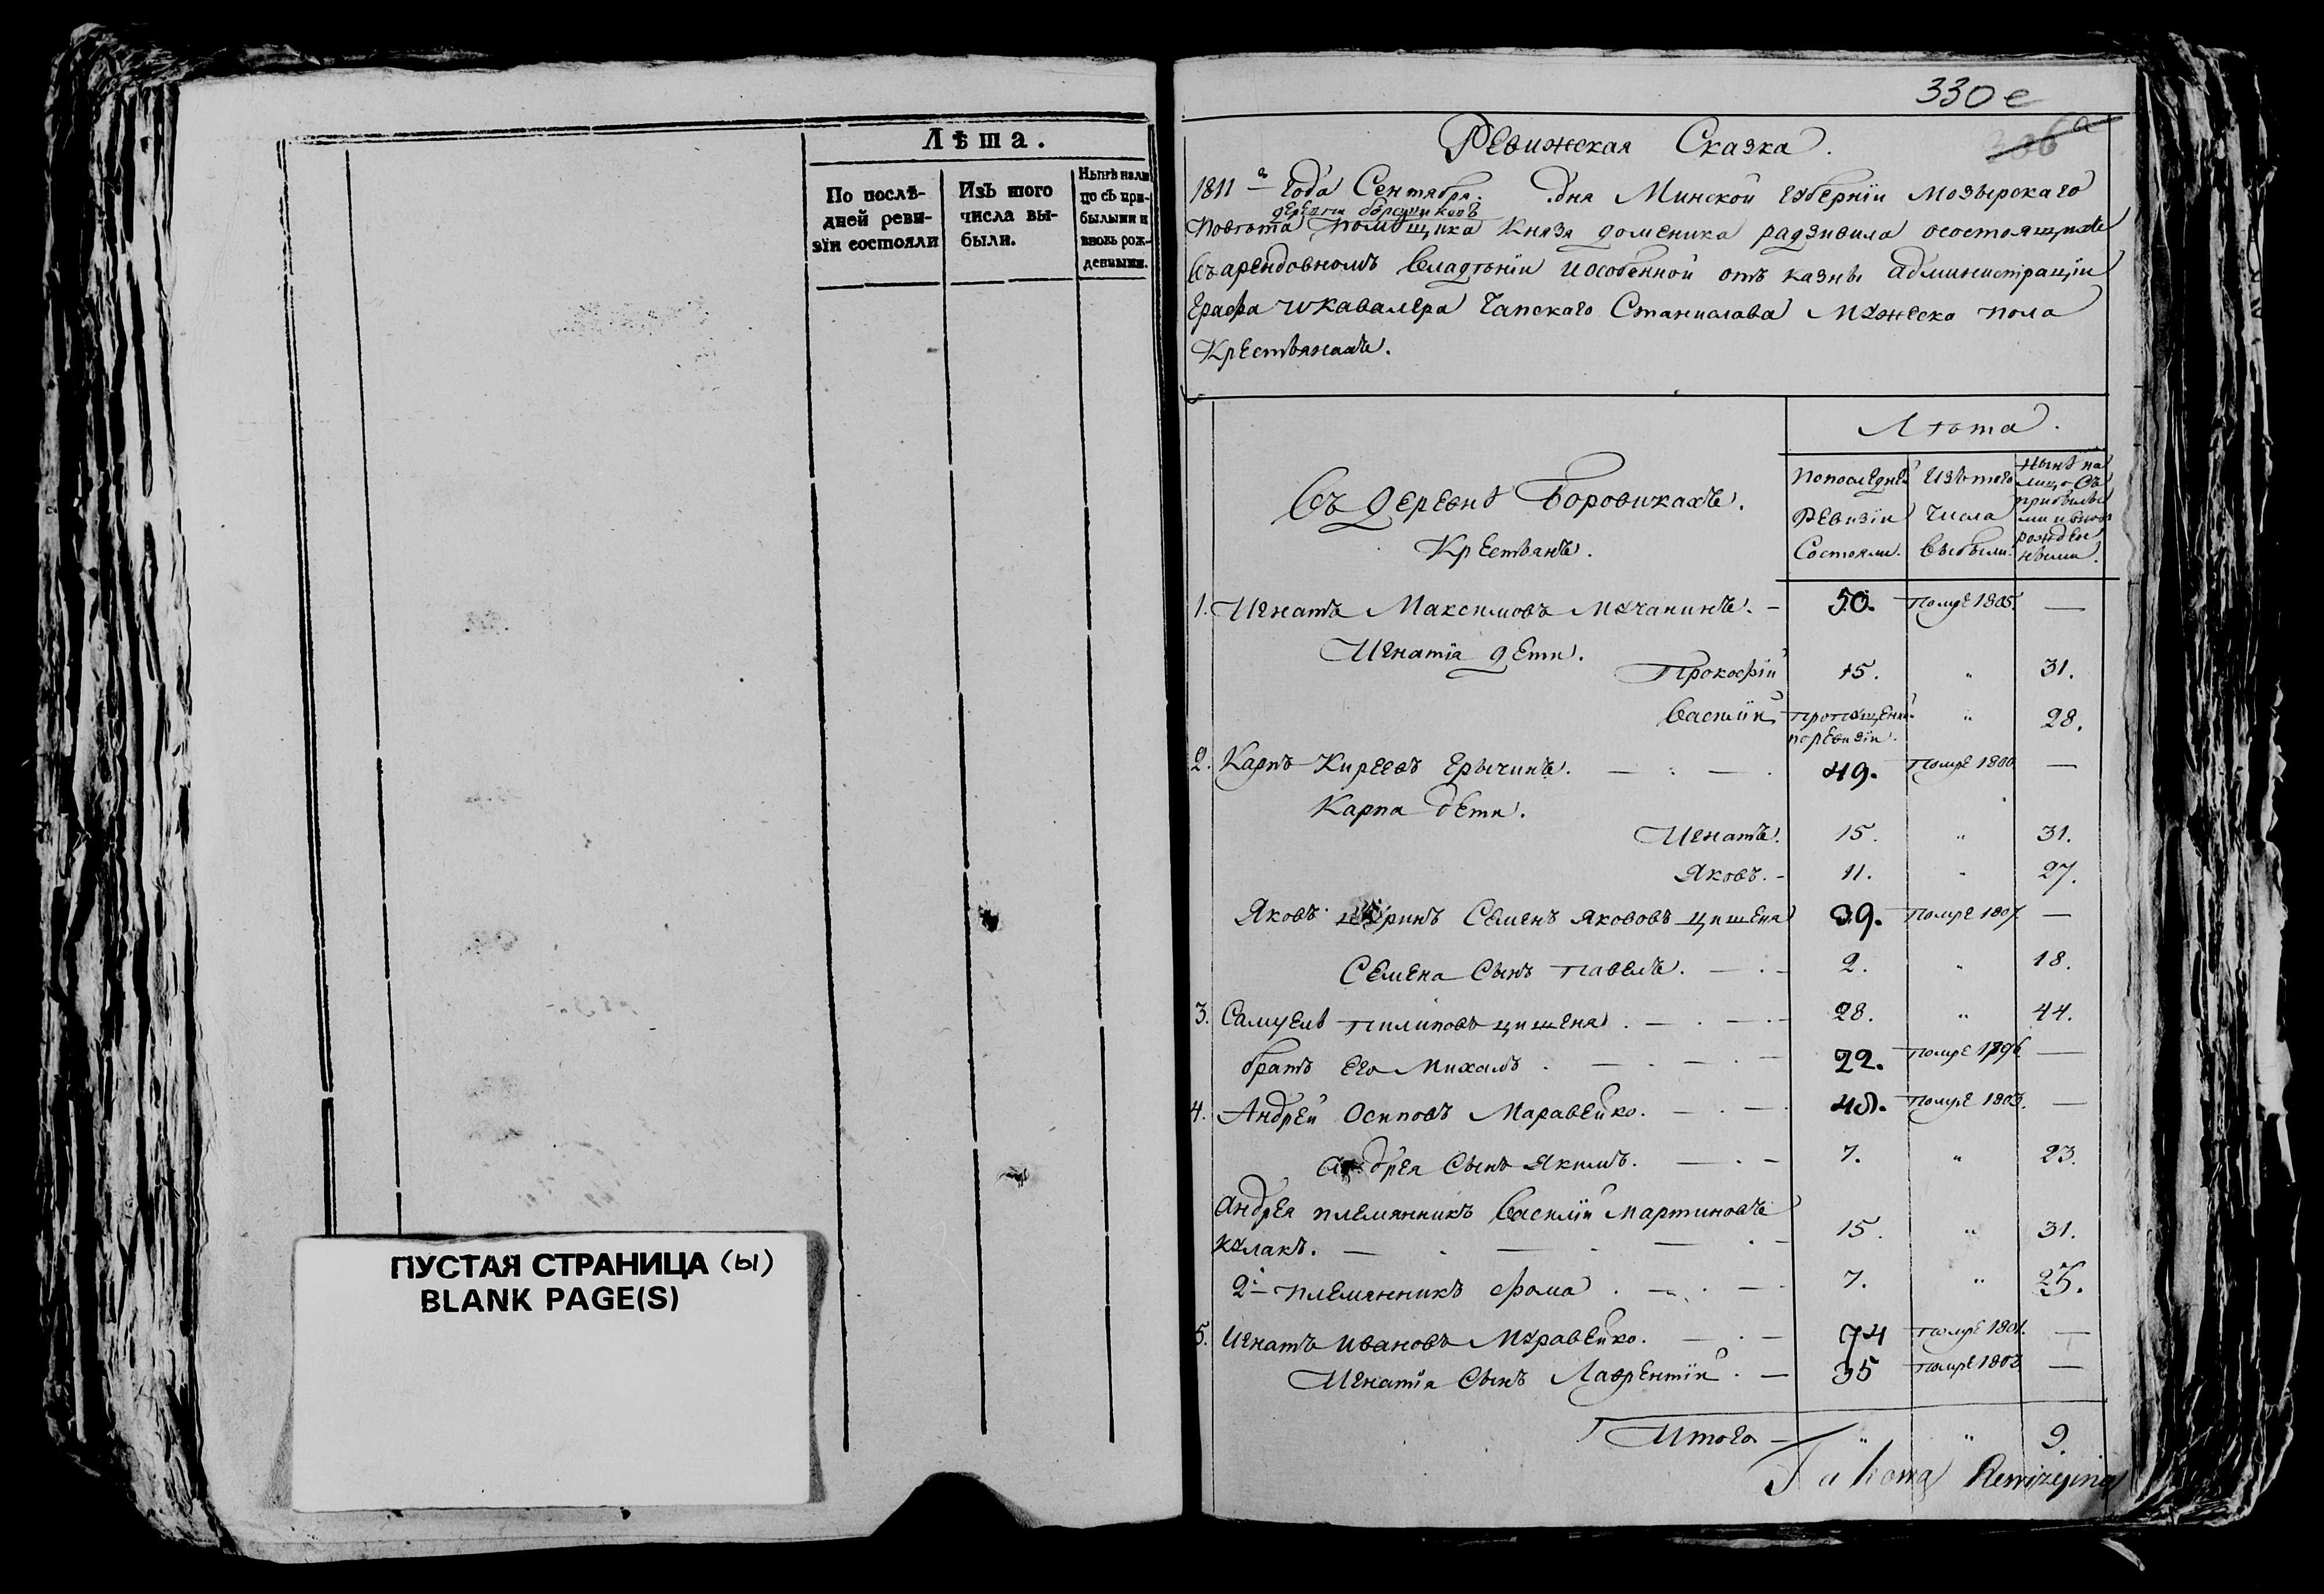 Лѣта.
По послѣ-
дней реви-
зіи состояли
Изъ того
числа вы-
были.
Нынѣ на ли
цо съ при-
былыми и
вновь рож-
денными.
ПУСТАЯ СТРАНИЦА (ы)
BLANK PAGE(S)
330 е
306 а
Ревижская Сказка.
1811 года Сентября. дня Минской губерніи Мозырскаго
деревни боровиковъ
повѣта помѣщика Князя доменика радзивила осостоящихъ
въ арендовномъ владѣніи и особенной отъ казны администраціи
графа и кавалера Чапскаго Станислава мужеска пола
Крестьянахъ.
Лѣта.
Въ деревнѣ Боровикахъ.
Крестьянъ.
По последней
Ревизіи
Состояли.
Изъ того
Числа
выбыли.
Нынѣ на
лицо съ
прибылы
ми и внов
рожден
ными.
1. Игнатъ Максимовъ Мучанинъ. — 50. помре 1805. —
Игнатія дети.
Прокофій 15. " 31.
Василій пропущенъ " 28.
по ревизіи.
2. Карпъ Киреевъ Ерычинъ. — 49. помре 1800 —
Карпа дети.
Игнатъ. 15. " 31.
Яковъ. - 11. " 27.
Яковъ Семенъ Якововъ цишеня 39. помре 1807 —
Семена Сынъ павелъ. — 2. " 18.
3. Самуелъ пилиповъ цишеня. — 28. " 44.
братъ его Михалъ. — 22. помре 1796 —
4. Андрей Осиповъ Маравейко. — 48. помре 1803. —
андрея Сынъ Якимъ. — 7. " 23.
андрея племянникъ Василій Мартиновъ
кулакъ. — 15. " 31.
2й племянникъ фома. — 7. " 23.
5. Игнатъ Ивановъ Муравейко. — 74 помре 1801. —
Игнатія Сынъ Лаврентій. — 35 помре 1803 —
Итого — " " 9.